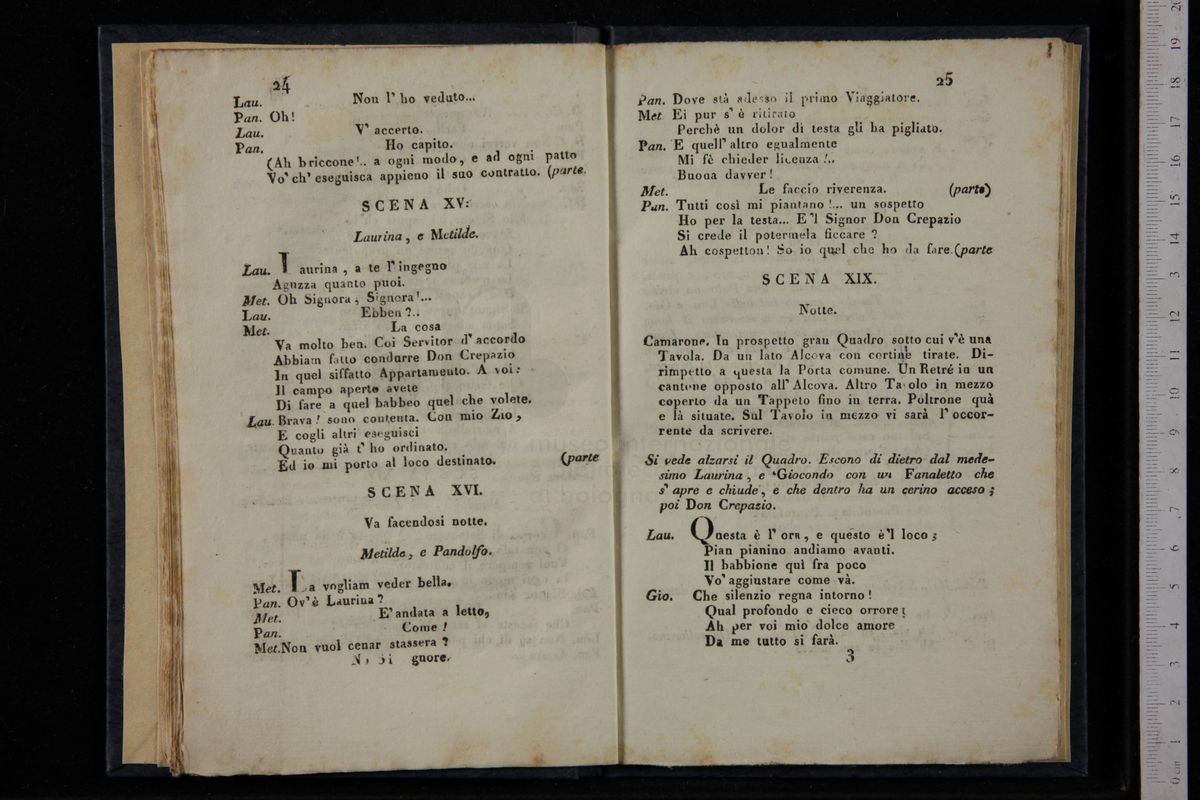 24
Lau. Non l' ho veduto...
Pan. Oh!
Lau. V' accerto.
Pan. Ho capito.
(Ah briccone!.. a ogni modo, e ad ogni patto
Vo' ch' eseguisca appieno il suo contratto. (parte.
SCENA XV:
Laurina, e Metilde.
Lau. Laurina, a te l' ingegno
Aguzza quanto puoi.
Met. Oh Signora, Signora!...
Lau. Ebben?..
Met. La cosa
Va molto ben. Coi Servitor d' accordo
Abbiam fatto condurre Don Crepazio
In quel siffatto Appartamento. A voi:
Il campo aperto avete
Di fare a quel babbeo quel che volete.
Lau. Brava! sono contenta. Con mio Zio,
E cogli altri eseguisci
Quanto già t' ho ordinato.
Ed io mi porto al loco destinato. (parte
SCENA XVI.
Va facendosi notte.
Metilde, e Pandolfo.
Met. La vogliam veder bella.
Pan. Ov' è Laurina?
Met. E' andata a letto,
Pan. Come!
Met. Non vuol cenar stassera?
N, Si gnore.
25
Pan. Dove stà adesso il primo Viaggiatore.
Met Ei pur s' è ritirato
Perchè un dolor di testa gli ha pigliato.
Pan. E quell' altro egualmente
Mi fè chieder licenza!..
Buona davver!
Met. Le faccio riverenza. (parte)
Pan. Tutti così mi piantano!... un sospetto
Ho per la testa... E 'l Signor Don Crepazio
Si crede il potermela ficcare?
Ah cospetton! So io quel che ho da fare. (parte
SCENA XIX.
Notte.
Camarone. In prospetto gran Quadro sotto cui v'è una
Tavola. Da un lato Alcova con cortine tirate. Di-
rimpetto a questa la Porta comune. Un Retré in un
cantone opposto all' Alcova. Altro Tavolo in mezzo
coperto da un Tappeto fino in terra. Poltrone quà
e là situate. Sul Tavolo in mezzo vi sarà l' occor-
rente da scrivere.
Si vede alzarsi il Quadro. Escono di dietro dal mede-
simo Laurina, e Giocondo con un Fanaletto che
s' apre e chiude, e che dentro ha un cerino acceso;
poi Don Crepazio.
Lau. Questa è l' ora, e questo è 'l loco;
Pian pianino andiamo avanti.
Il babbione quì fra poco
Vo' aggiustare come và.
Gio. Che silenzio regna intorno!
Qual profondo e cieco orrore!
Ah per voi mio dolce amore
Da me tutto si farà.
3